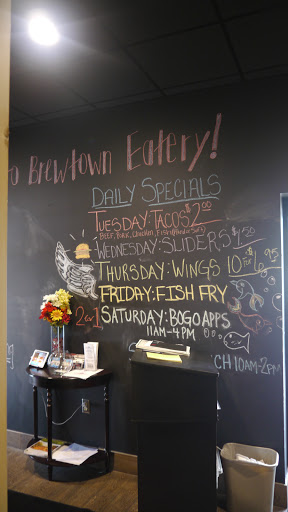 o Brewtown Eatery!
Daily Specials
Tuesday: Tacos $2.00
Beef, Pork, Chicken, Fish
Wednesday: Sliders $1.50
Thursday: Wings 10 for 6.95
Friday: Fish Fry
2 for 1
Saturday: BOGO Apps
11AM-4PM
CH 10AM-2PM